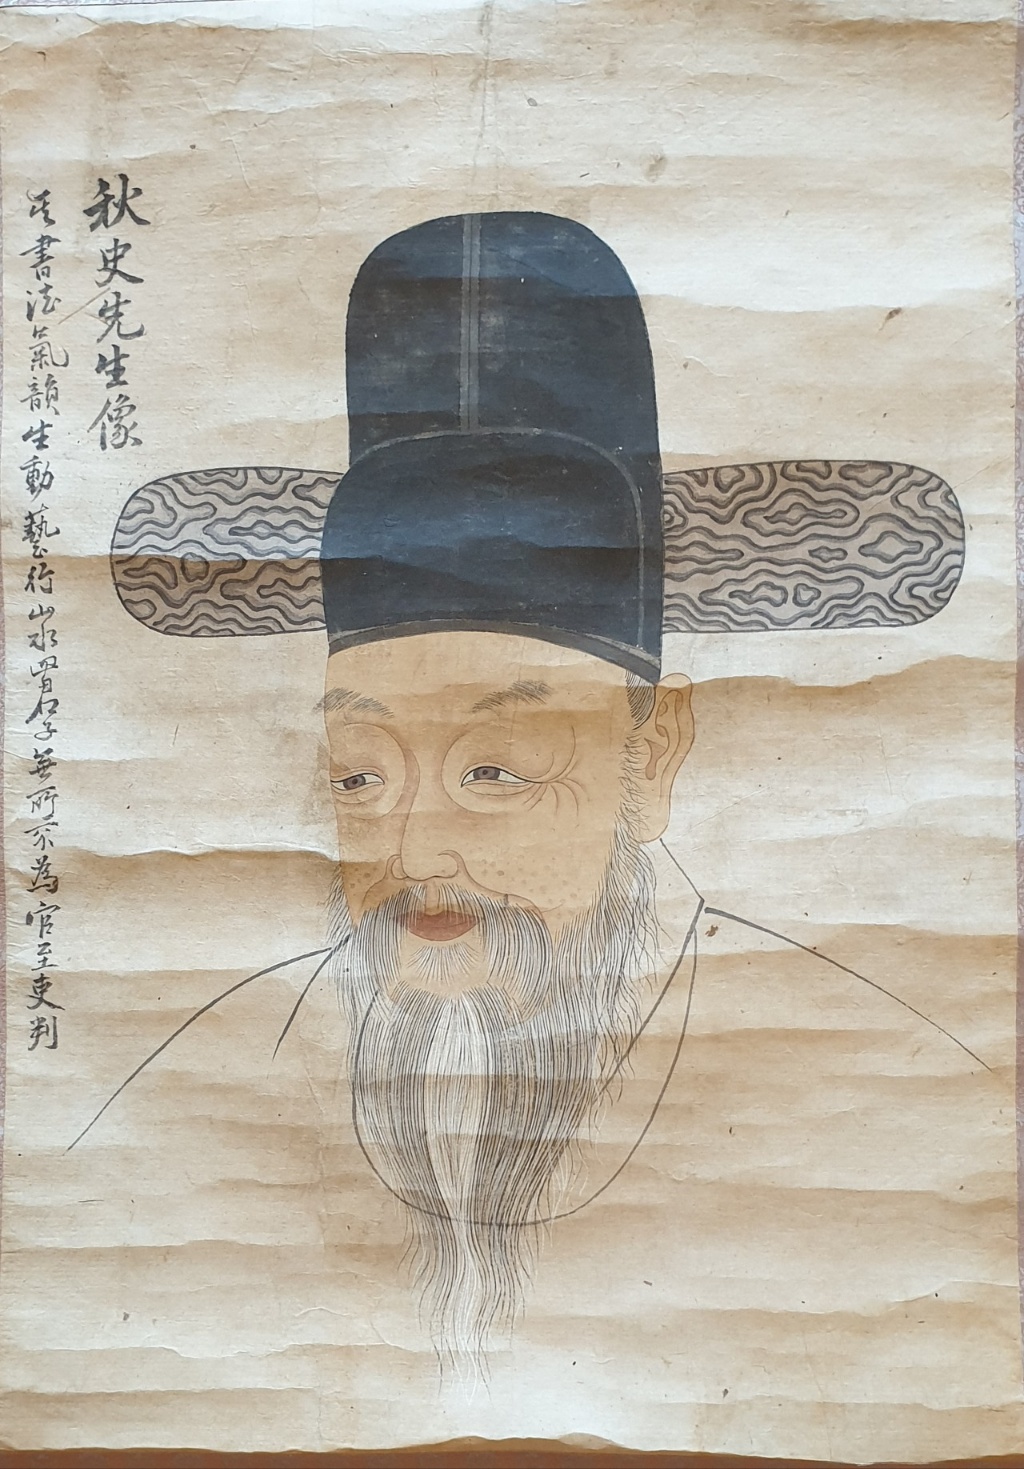 秋史先生像
其書法氣韻生動藝行山水四君子無所不為官至吏判